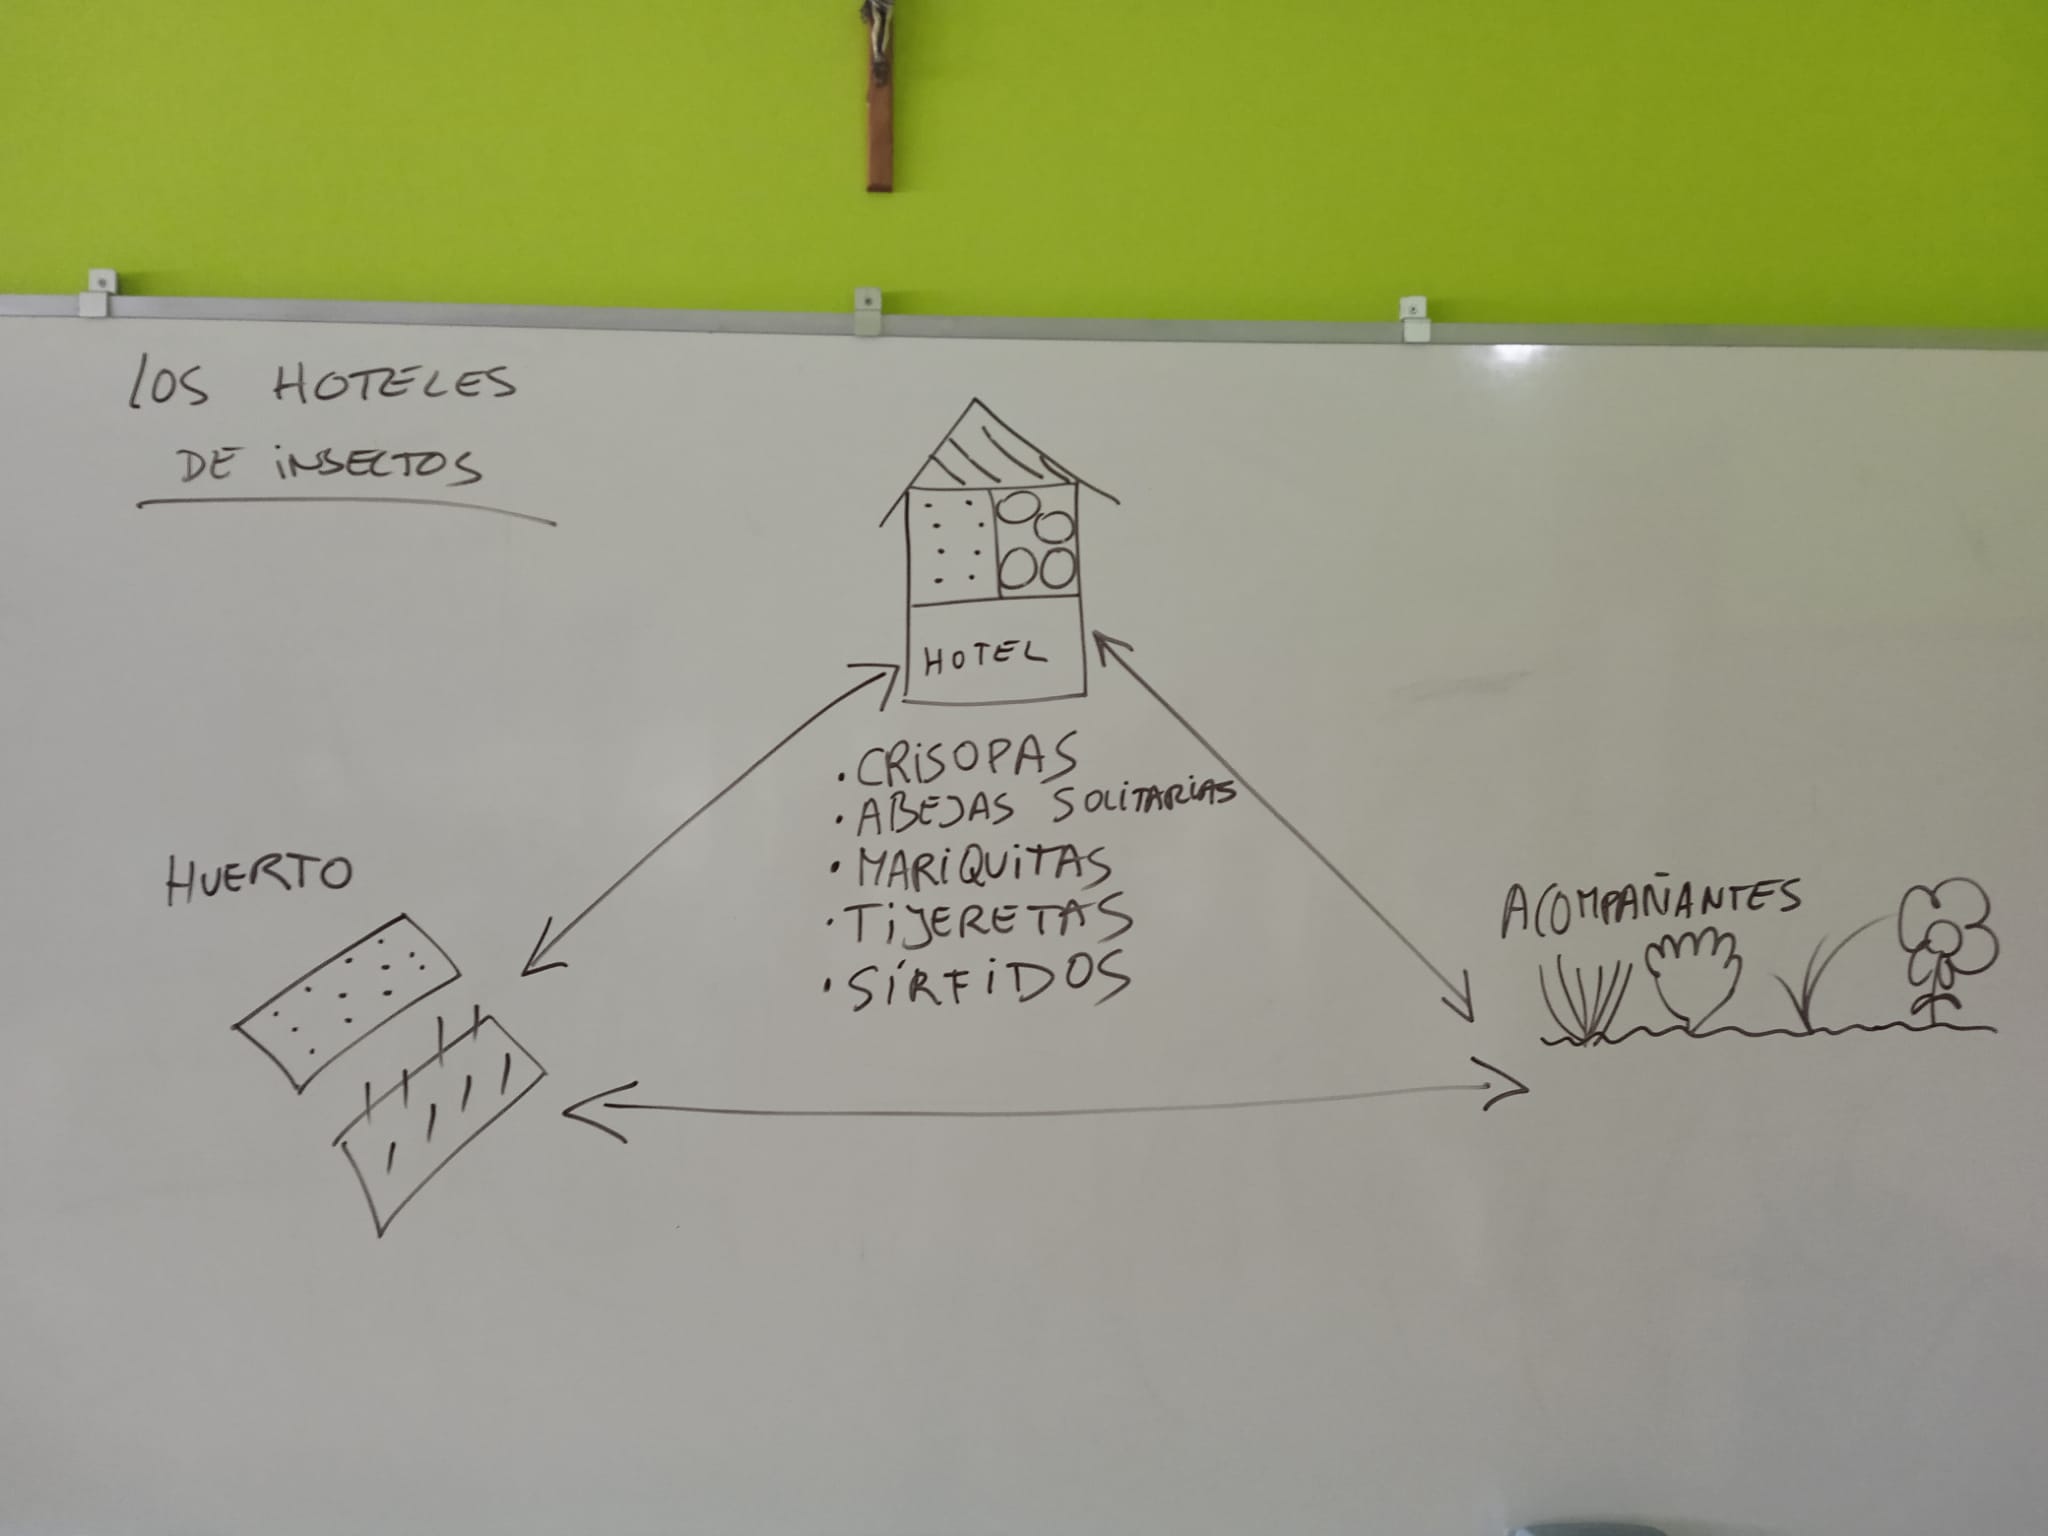 LOS HOTELES
DE INSECTOS
HOTEL
• CRISOPAS
• ABEJAS SOLITARIAS
• MARIQUITAS
• TIJERETAS
• SÍRFIDOS
HUERTO
ACOMPAÑANTES